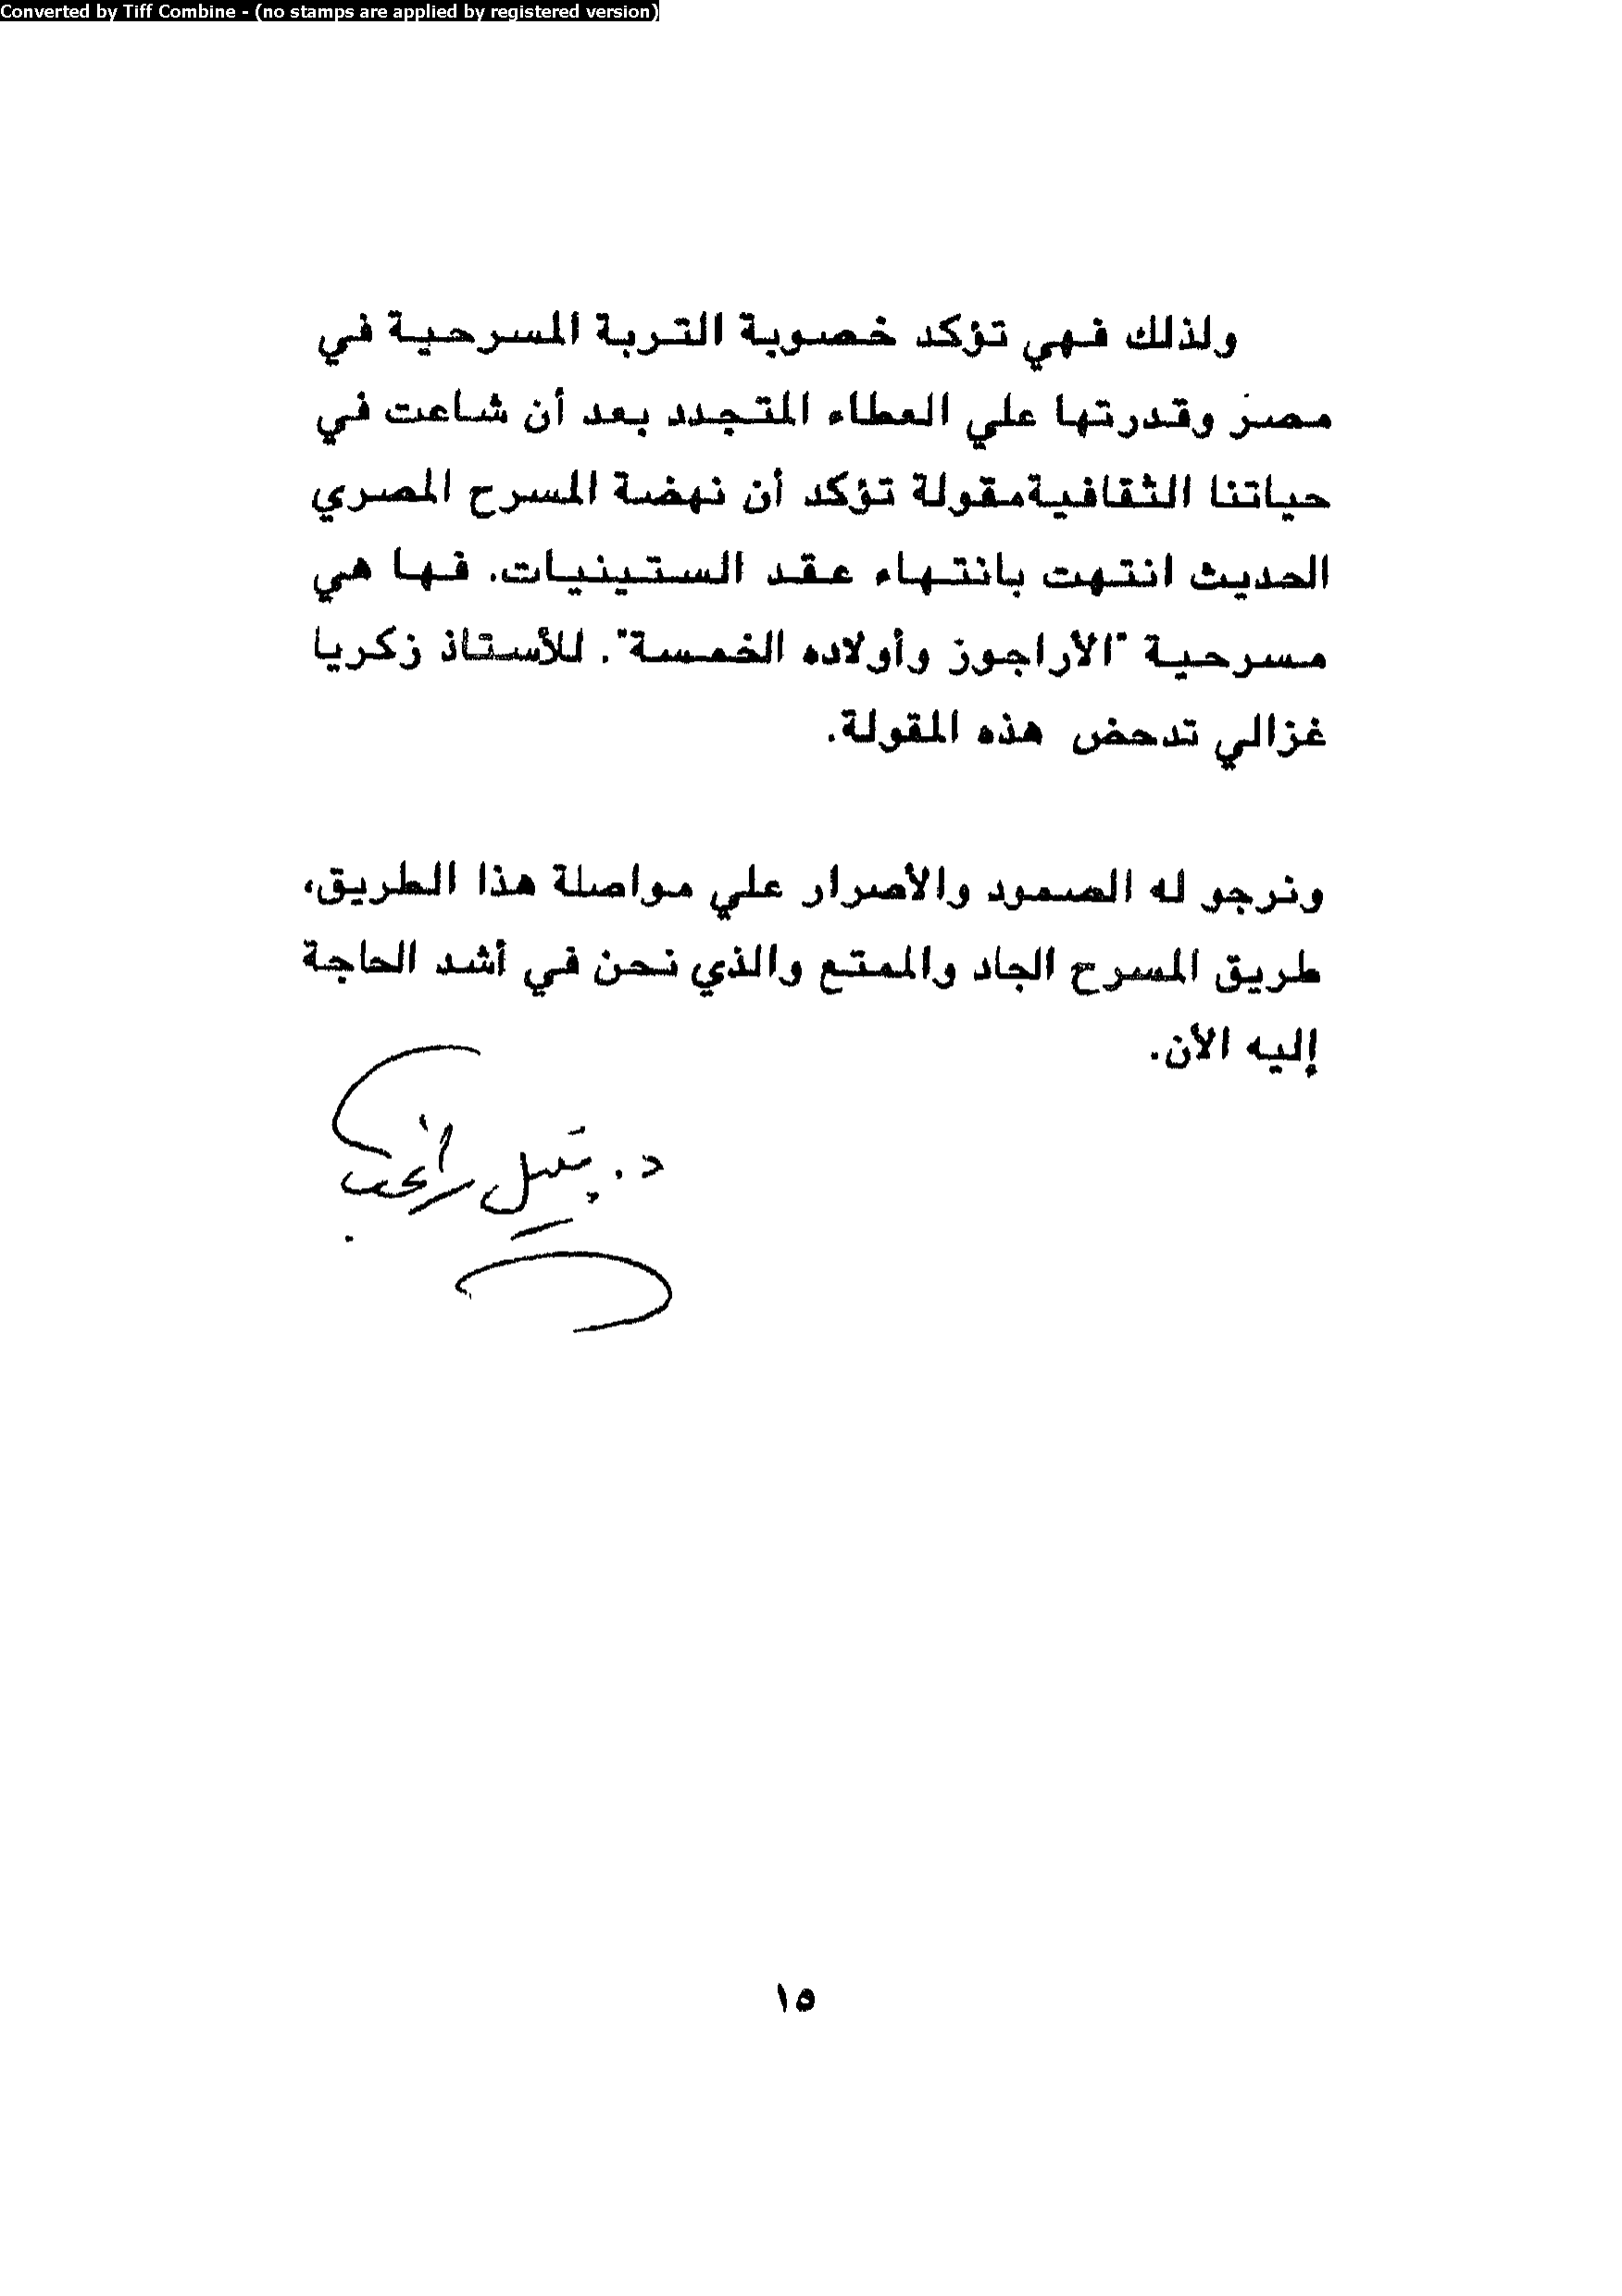 Converted by Tiff Combine - (no stamps are applied by registered version)
ولذلك فهي تؤكد خصوبة التربة المسرحية في
مصر وقدرتها علي العطاء المتجدد بعد أن شاعت في
حياتنا الثقافية مقولة تؤكد أن نهضة المسرح المصري
الحديث انتهت بانتهاء عقد الستينيات. فها هي
مسرحية "الأراجوز وأولاده الخمسة". للأستاذ زكريا
غزالي تدحض هذه المقولة.
ونرجو له الصمود والأصرار علي مواصلة هذا الطريق،
طريق المسرح الجاد والممتع والذي نحن في أشد الحاجة
إليه الأن.
د. نبيل راغب
١٥